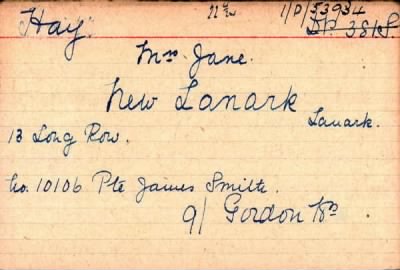 Hay. 22/- 1/D/53934
DP. 381S.
Mrs. Jane.
New Lanark
Lanark.
13 Long Row.
No. 10106 Pte James Smith.
9/ Gordon Hrs